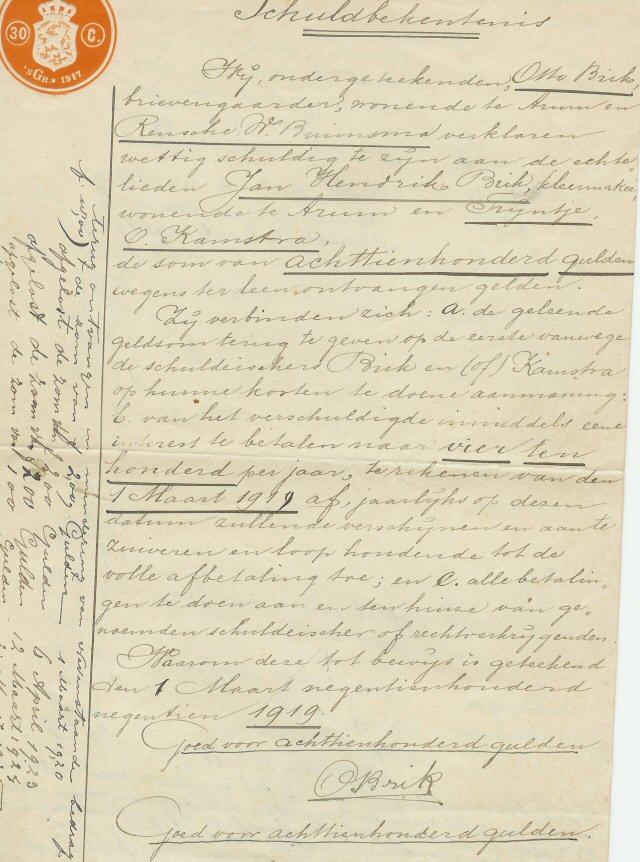 Schuldbekentenis
30 C.
'sGR. 1917
Wij, ondergeteekenden, Otto Brik,
brievengaarder, wonende te Arum en
Rensche W. Bruinsma verklaren
wettig schuldig te zijn aan de echte
lieden Jan Hendrik Brik, kleermaker,
wonende te Arum en Trijntje
O. Kamstra,
de som van achttienhonderd gulden
wegens ter leen ontvangen gelden.
Zij verbinden zich: a. de geleende
geldsom terug te geven op de eerste vanwege
de schuldeischers Brik en (of) Kamstra
op hunne kosten te doene aanmaning;
b. van het verschuldigde inmiddels eene
interest te betalen naar vier ten
honderd per jaar, te rekenen van den
1 Maart 1919 af, jaarlijks op dezen
datum zullende verschijnen en aan te
zuiveren en loop houdende tot de
volle afbetaling toe; en C. alle betalin„
gen te doen aan en ten huize van ge„
noemden schuldeischer of rechtverkrijgenden.
Waarom deze tot bewijs is geteekend
den 1 Maart negentienhonderd
negentien 1919
Goed voor achttienhonderd gulden
OBrik
Goed voor achttienhonderd gulden.
Terug ontvangen in mindering van nevenstaande bedrag
de som van f 200, Gulden 1 Maart 1920
afgelost de som van 200 Gulden 6 April 1923
afgelost de som van 200 Gulden 12 Maart 1925
afgelost de som van 100 Gulden